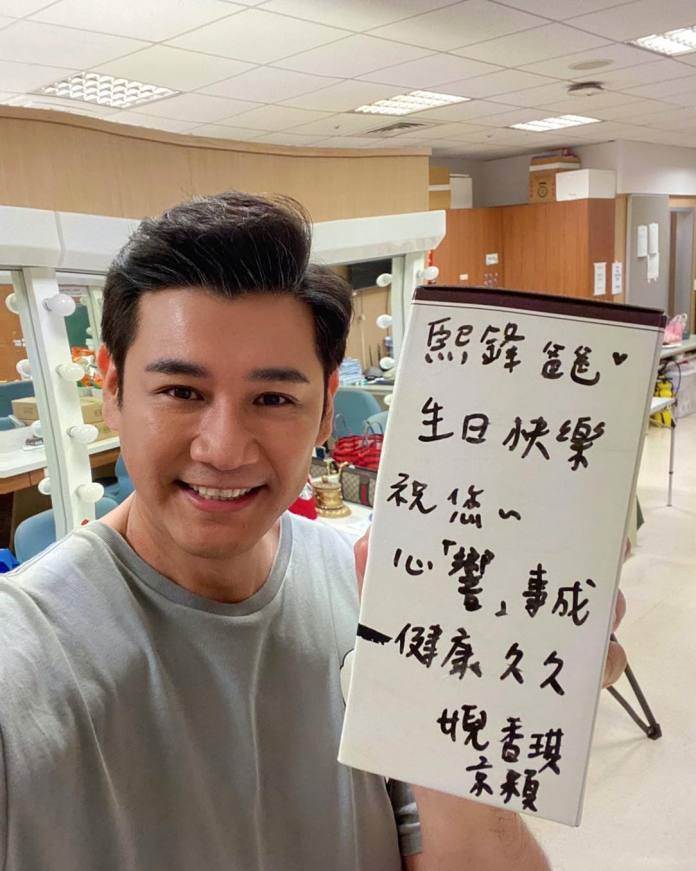 熙鋒爸爸♥
生日快樂
祝您~
心「響」事成
健康久久
婗香琪
京穎